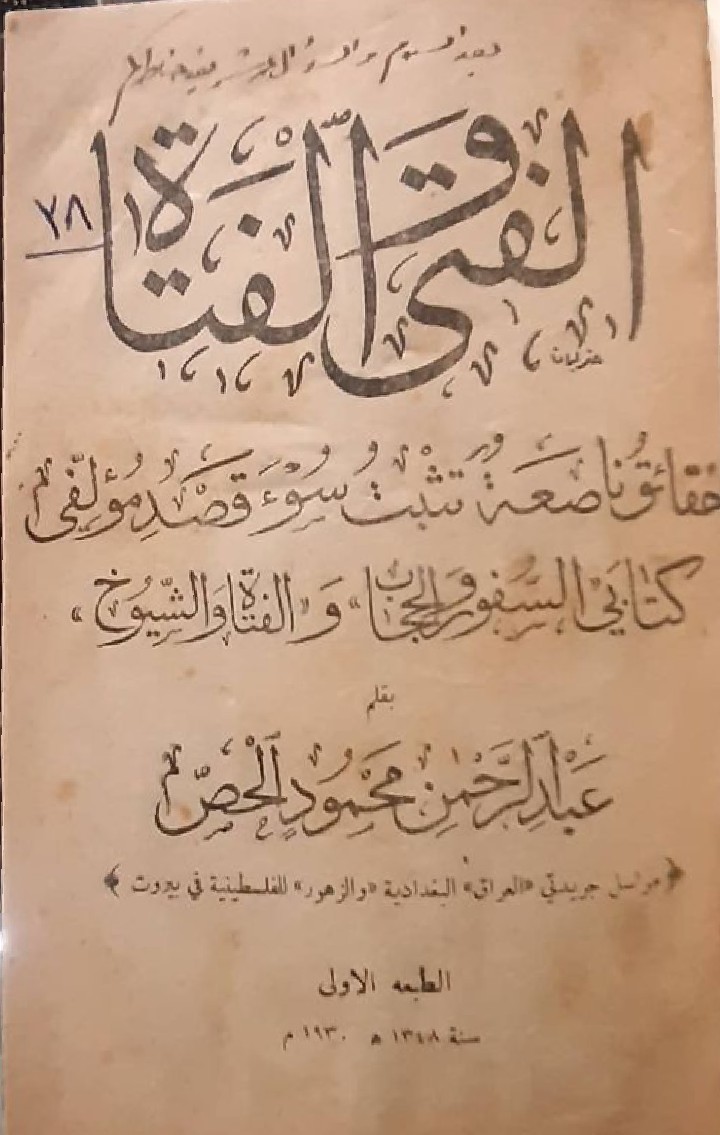 بعد السلام والسؤال
الفتى والفتاة
٧٨
حقائق ناصعة تثبت سوء قصد مؤلفي
كتابي السفور والحجاب» و «الفتاة والشيوخ»
بقلم
عبد الرحمن محمود الحص
﴿مراسل جريدتي «العراق» البغدادية «والزهور» للفلسطينية في بيروت﴾
الطبعه الاولى
سنة ١٣٤٨ ه ١٩٣٠ م